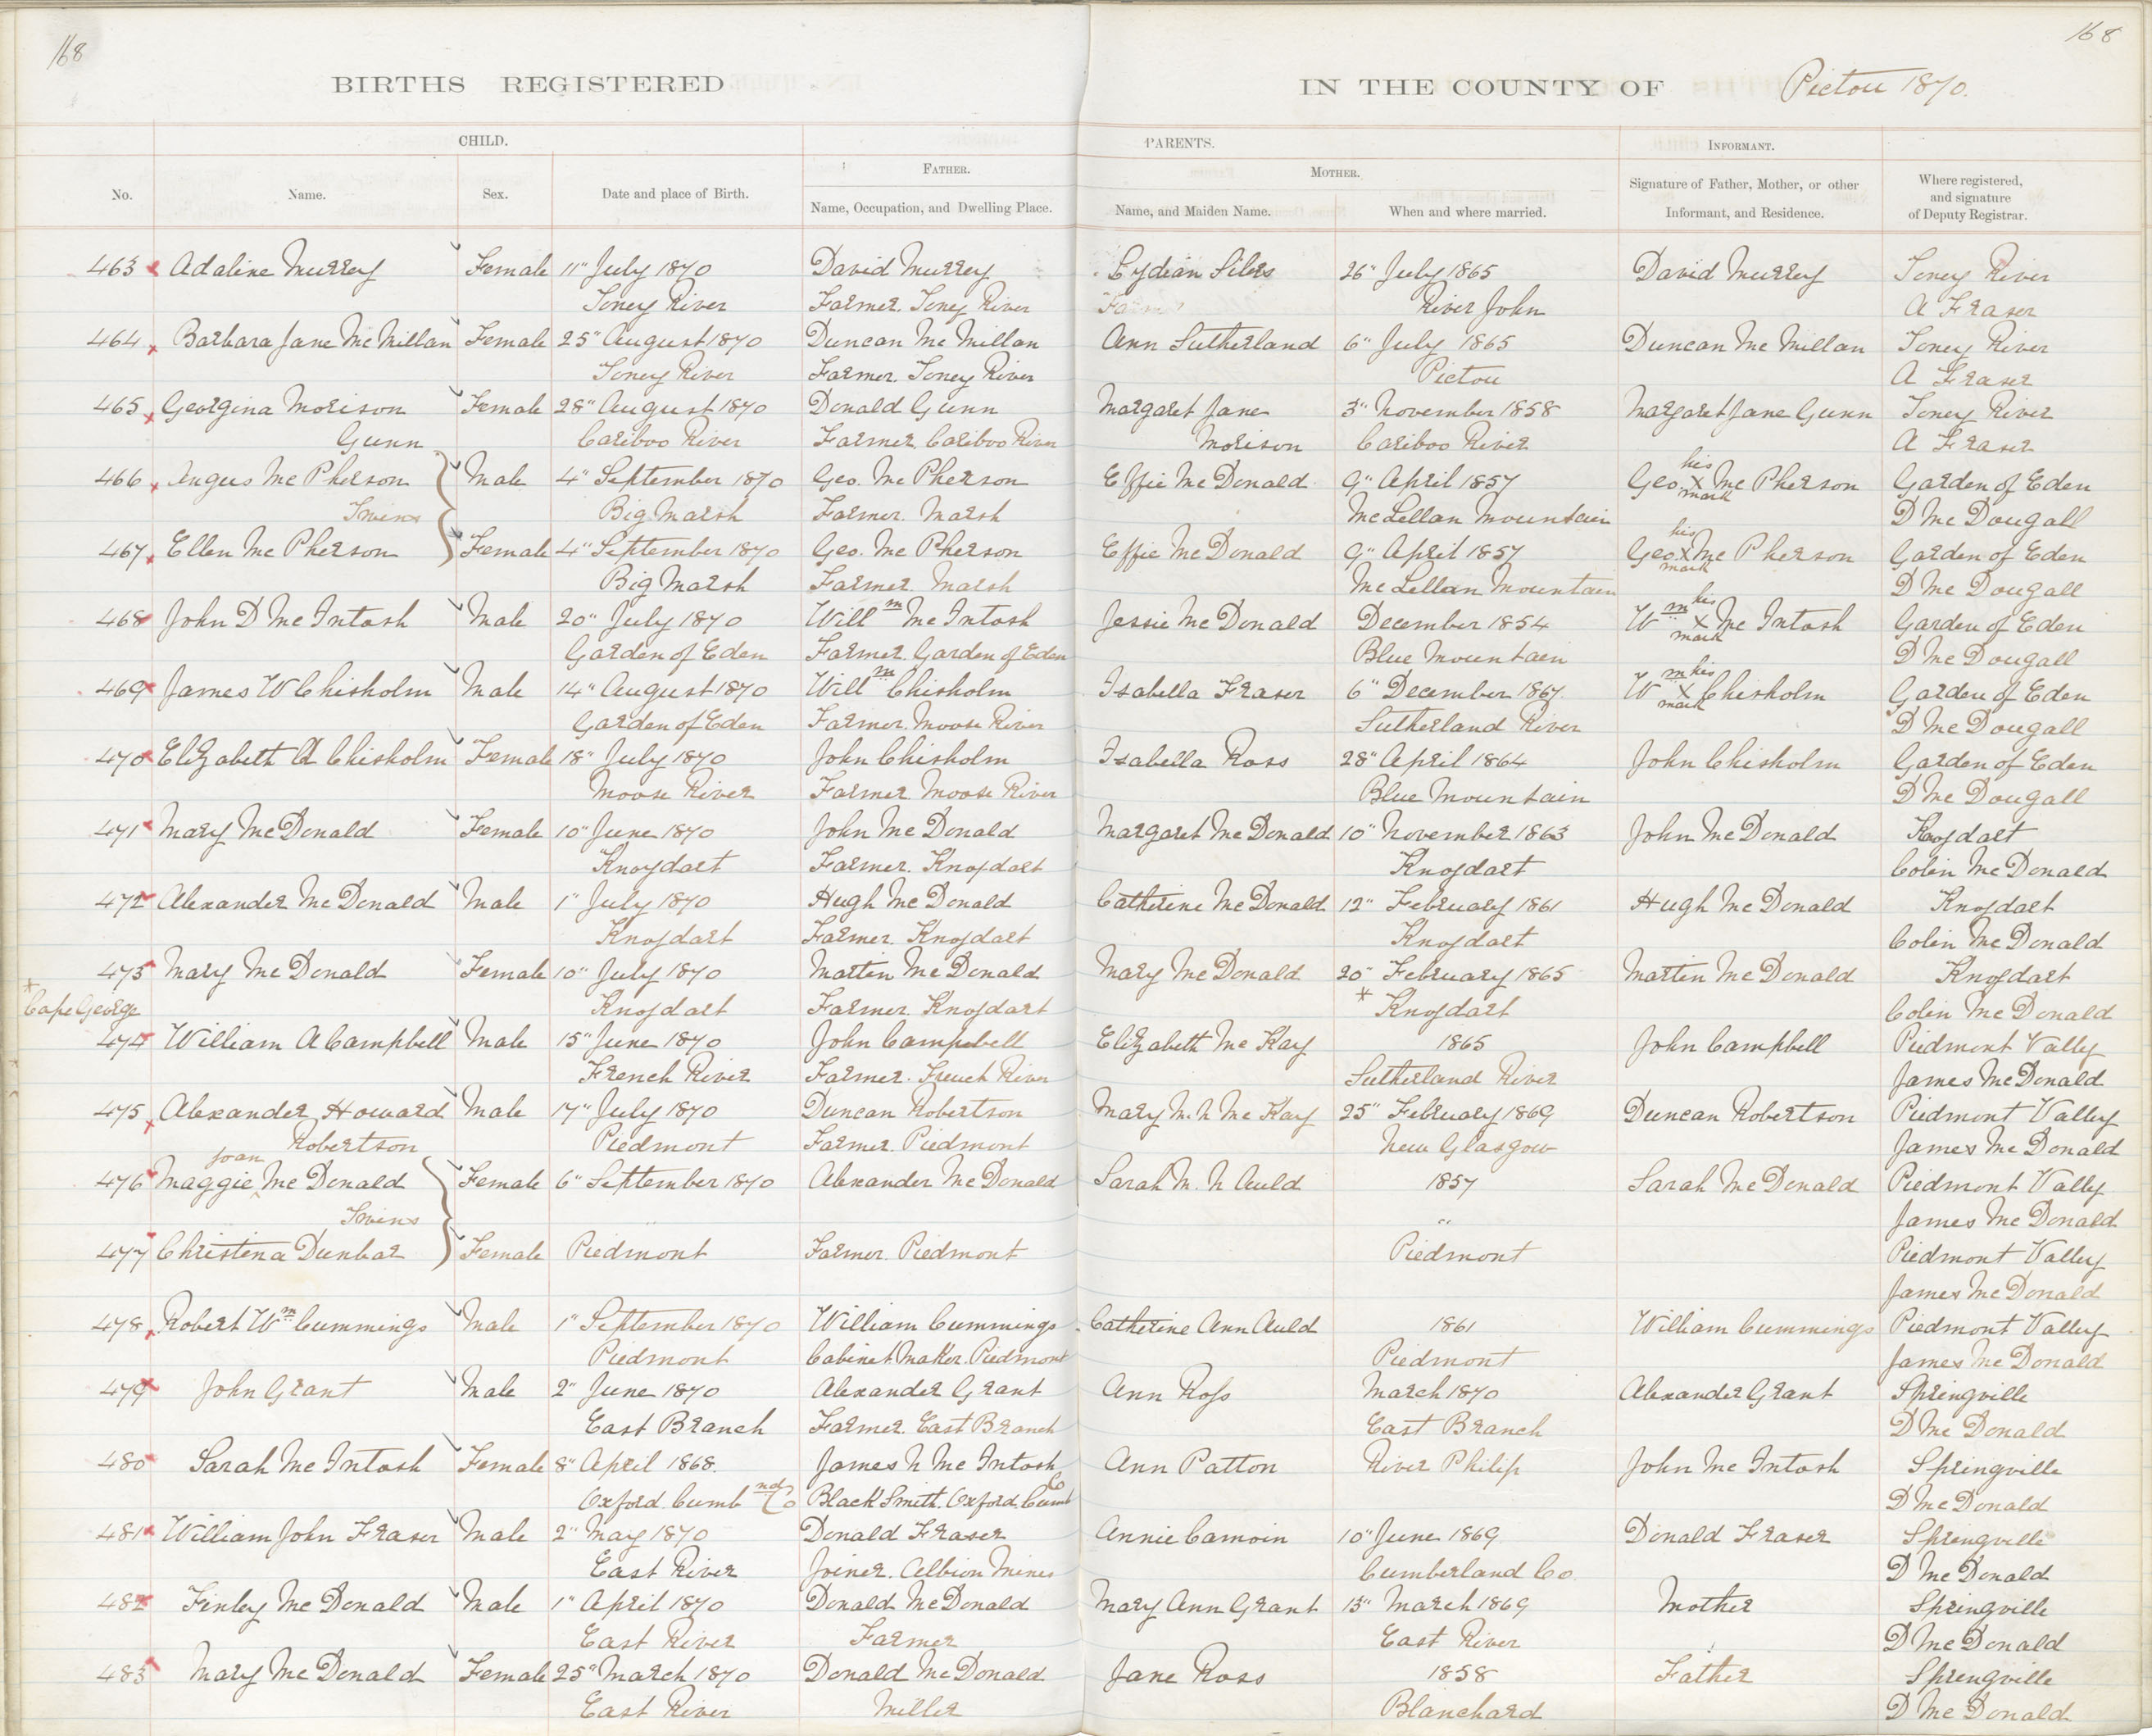 168
168
BIRTHS REGISTERED
IN THE COUNTY OF Pictou 1870.
CHILD.
PARENTS.
INFORMANT.
FATHER.
MOTHER.
No.
Name.
Sex.
Date and place of Birth.
Name, Occupation, and Dwelling Place.
Name, and Maiden Name.
When and where married.
Signature of Father, Mother, or other
Informant, and Residence.
Where registered,
and signature
of Deputy Registrar.
463 Adaline Murrey Female 11" July 1870 David Murrey Lydian Silers 26" July 1865 David Murrey Toney River
Toney River Farmer. Toney River River John A Fraser
464 Barbara Jane McMillan Female 25" August 1870 Duncan McMillan Ann Sutherland 6" July 1865 Duncan McMillan Toney River
Toney River Farmer. Toney River Pictou A Fraser
465 Georgina Morison Female 28" August 1870 Donald Gunn Margaret Jane 3" November 1858 Margaret Jane Gunn Toney River
Gunn Cariboo River Farmer. Cariboo River Morison Cariboo River A Fraser
466 Angus McPherson Male 4" September 1870 Geo. McPherson Effie McDonald 9" April 1857 Geo. his X mark McPherson Garden of Eden
Twins Big Marsh Farmer. Marsh McLellan Mountain D McDougall
467 Ellen McPherson Female 4" September 1870 Geo. McPherson Effie McDonald 9" April 1857 Geo his X mark McPherson Garden of Eden
Big Marsh Farmer. Marsh McLellan Mountain D McDougall
468 John D McIntosh Male 20" July 1870 Willm McIntosh Jessie McDonald December 1854 Wm his X mark McIntosh Garden of Eden
Garden of Eden Farmer. Garden of Eden Blue Mountain D McDougall
469 James W Chisholm Male 14" August 1870 Willm Chisholm Isabella Fraser 6" December 1867. Wm his X mark Chisholm Garden of Eden
Garden of Eden Farmer. Moose River Sutherland River D McDougall
470 Elizabeth A Chisholm Female 18" July 1870 John Chisholm Isabella Ross 28" April 1864 John Chisholm Garden of Eden
Moose River Farmer Moose River Blue Mountain D McDougall
471 Mary McDonald Female 10" June 1870 John McDonald Margaret McDonald 10" November 1863 John McDonald Knoydart
Knoydart Farmer. Knoydart Knoydart Colin McDonald
472 Alexander McDonald Male 1" July 1870 Hugh McDonald Catherine McDonald 12" February 1861 Hugh McDonald Knoydart
Knoydart Farmer. Knoydart Knoydart Colin McDonald
473 Mary McDonald Female 10" July 1870 Martin McDonald Mary McDonald 20" February 1865 Martin McDonald Knoydart
* Cape George Knoydart Farmer. Knoydart * Knoydart Colin McDonald
474 William A Campbell Male 15" June 1870 John Campbell Elizabeth McKay 1865 John Campbell Piedmont Vally
French River Farmer. French River Sutherland River James McDonald
475 Alexander Howard Male 17" July 1870 Duncan Robertson Mary M. N McKay 25" February 1869 Duncan Robertson Piedmont Valley
Robertson Piedmont Farmer. Piedmont New Glasgow James McDonald
Joan
476 Maggie McDonald Female 6" September 1870 Alexander McDonald Sarah M. N Auld 1857 Sarah McDonald Piedmont Vally
Twins " " James McDonald
477 Christena Dunbar Female Piedmont Farmer. Piedmont Piedmont Piedmont Valley
James McDonald
478 Robert Wm Cummings Male 1" September 1870 William Cummings Catherine Ann Auld 1861 William Cummings Piedmont Valley
Piedmont Cabinet Maker. Piedmont Piedmont James McDonald
479 John Grant Male 2" June 1870 Alexander Grant Ann Ross March 1870 Alexander Grant Springville
East Branch Farmer. East Branch East Branch D McDonald
480 Sarah McIntosh Female 8" April 1868. James N McIntosh Ann Patton River Philip John McIntosh Springville
Oxford Cumbnd Co Black Smith. Oxford Cumb Co D McDonald
481 William John Fraser Male 2" May 1870 Donald Fraser Annie Camoin 10" June 1869 Donald Fraser Springville
East River Joiner. Albion Mines Cumberland Co. D McDonald
482 Finley McDonald Male 1" April 1870 Donald McDonald Mary Ann Grant 13" March 1869 Mother Springville
East River Farmer East River D McDonald
483 Mary McDonald Female 25" March 1870 Donald McDonald Jane Ross 1858 Father Springville
East River Miller Blanchard D McDonald